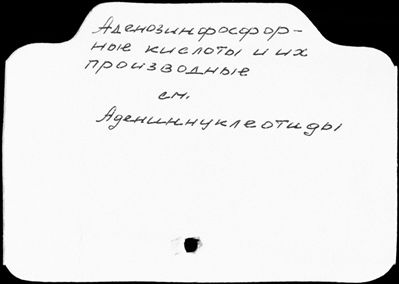 Аденозинфосфор-
ные кислоты и их
производные
см.
Адениннуклеотиды